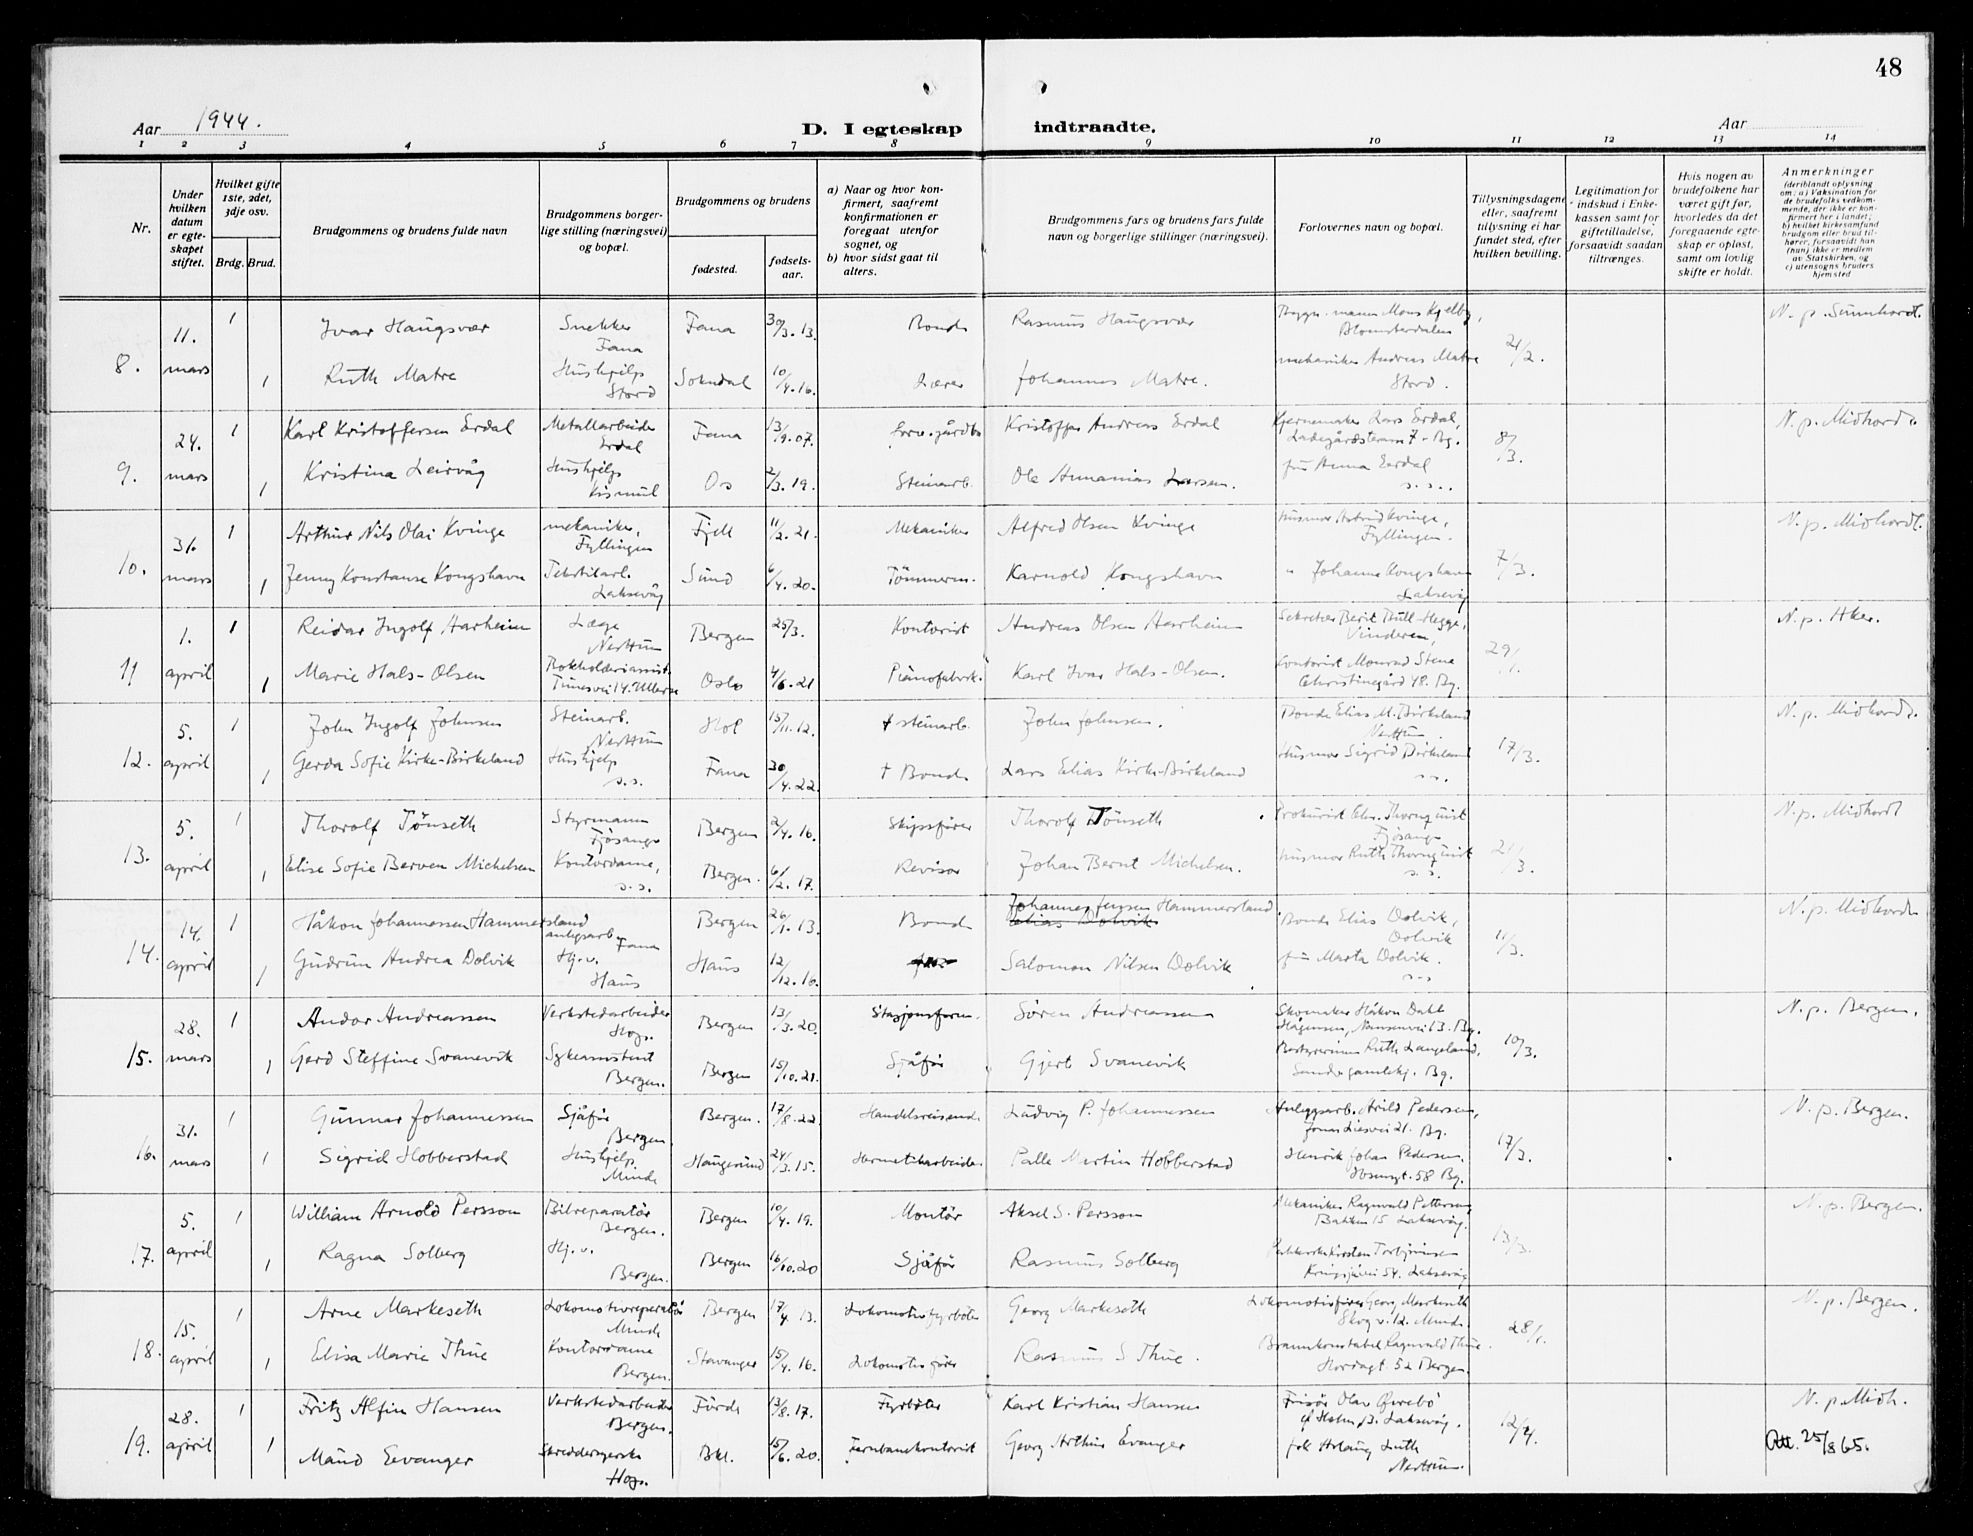 48
Aar 1944.
D. I egteskap indtraadte.
Aar
1 2 3 4 5 6 7 8 9 10 11 12 13 14
Nr.
Under hvilken datum er egteskapet stiftet.
Hvilket gifte 1ste, 2det, 3dje osv.
Brdg. Brud.
Brudgommens og brudens fulde navn
Brudgommens borgerlige stilling (næringsvei) og bopæl.
Brudgommens og brudens
fødested.
fødselsaar.
a) Naar og hvor konfirmert, saafremt konfirmationen er foregaat utenfor sognet, og
b) hvor sidst gaat til alters.
Brudgommens fars og brudens fars fulde navn og borgerlige stillinger (næringsvei).
Forlovernes navn og bopæl.
Tillysningsdagene eller, saafremt tillysning ei har fundet sted, efter hvilken bevilling.
Legitimation for indskud i Enkekassen samt for giftetilladelse, forsaavidt saadan tiltrænges.
Hvis nogen av brudefolkene har været gift før, hvorledes da det foregaaende egteskap er opløst, samt om lovlig skifte er holdt.
Anmerkninger
(deriblandt oplysning om: a) Vaksination for de brudefolks vedkommende, der ikke er konfirmert her i landet; b) hvilket kirkesamfund brudgom eller brud tilhører, forsaavidt han (hun) ikke er medlem av Statskirken, og c) utensogns bruders hjemsted
8. 11. mars 1 Ivar Haugsvær Snekker Fana Fana 30/3.13. Bonde Rasmus Haugsvær Mons Kjelby, Blomsterdalen 21/2. N. p. Sunnhordl.
1 Ruth Matre Hushjelp Stord Sokndal 10/4.16. Lærer Johannes Matre. mekaniker Andreas Matre Stord.
9. 24. mars 1 Karl Kristoffersen Erdal Metallarbeider Erdal Fana 13/9.07. Kristoffer Andreas Erdal Kjernemaker Lars Erdal, 7 - Bg. 8/3. N. p. Midhordl.
1 Kristina Leirvåg Hushjelp Kismul Os 2/3.19. Steinarb. Ole Annanias Larsen. fru Anna Erdal s.s.
10. 31. mars 1 Arthur Nils Olai Kvinge mekaniker, Fyllingen Fjell 11/2.21. Mekaniker Alfred Olsen Kvinge husmor Astrid Kvinge, Fyllingen. 7/3. N. p. Midhordl.
1 Jenny Konstanse Kongshavn Tekstilarb. Laksevåg Sund 6/4.20. Tömmerm. Karnold Kongshavn " Johanne Kongshavn Laksevåg
11 1. april 1 Reidar Ingolf Aarheim Læge Nesttun Bergen 25/3. Kontorist Andreas Olsen Aarheim Sekretær Berit Thill-Hegge, Vinderen, 29/1. N. p. Aker.
1 Marie Hals-Olsen Bokholderiassist. Tunesvei 14. Oslo 4/6.21 Pianofabrik. Karl Ivar Hals-Olsen. Kontorist Monrad Stene Christinegård 48. Bg.
12. 5. april 1 John Ingolf Johnsen Steinarb. Nesttun Hol 15/11.12. † steinarb. John Johnsen. Bonde Elias M. Birkeland Nesttun 17/3. N. p. Midhordl.
1 Gerda Sofie Kirke-Birkeland Hushjelp s.s. Fana 30/4.22. † Bonde Lars Elias Kirke-Birkeland Husmor Sigrid Birkeland s.s.
13. 5. april 1 Thorolf Tönseth Styrmann Fjösanger Bergen 2/4.16. Skipsförer Thorolf Tönseth Prokurist Chr. Thornquist Fjösanger 21/3. N. p. Midhordl
1 Elise Sofie Berven Michelsen Kontordame, s.s. Bergen. 6/2.17. Revisor Johan Bernt Michelsen. husmor Ruth Thornquist s.s.
14. 14. april 1 Håkon Johannessen Hammersland anlegsarb. Fana Bergen 26/1.13. Bonde Johannes Jensen Hammersland Elias Dolvik Bonde Elias Dolvik, Dolvik 11/3. N. p. Midhordl
1 Gudrun Andrea Dolvik Hj.v. Haus Haus 12/12.16. Salomon Nilsen Dolvik fru Marta Dolvik. s.s
15. 28. mars 1 Andor Andreassen Verkstedarbeider Hop. Bergen 13/3.20. Stasjonsform. Sören Andreassen Skomaker Håkon Dahl Hågensen, Nansenvei 13. Bg. 10/3. N. p. Bergen.
1 Gerd Steffine Svanevik Sykeassistent Bergen. Bergen 15/10.21. Sjåför Gjert Svanevik Bestyrerinne Ruth Langeland, Bg.
16. 31. mars 1 Gunnar Johannessen Sjåför Bergen. Bergen. 17/8.22. Handelsreisende Ludvig P. Johannessen Anleggsarb. Arild Pedersen, Jonas Liesvei 21. Bg. 17/3. N. p. Bergen.
1 Sigrid Hobberstad Hushjelp. Minde Haugesund 24/3.15. Hermetikarbeider Palle Martin Hobberstad Henrik Johan Pedersen, Ibsensgt. 58 Bg.
17. 5. april 1 William Arnold Persson Bilreparatör Bergen. Bergen 10/4.19. Montör Aksel S. Persson Mekaniker Ragnvald Pettersen Bakken 15 Laksevåg. 13/3. N. p. Bergen.
1 Ragna Solberg Hj.v. Bergen. Bergen 16/10.20 Sjåför Rasmus Solberg Kirsten Torbjörnsen Kringsjåvei 54. Laksevåg
18. 15. april 1 Arne Markeseth Lokomotivreparatör Minde Bergen 17/4.13. Lokomotivfyrböter Georg Markeseth Lokomotivförer Georg Markeseth Skogv. 12. Minde. 28/1. N. p. Bergen.
1 Elisa Marie Thue Kontordame Bergen. Stavanger 15/4.16. Lokomotivförer Rasmus S Thue. Brannkonstabel Ragnvald Thue. Hordagt. 52 Bergen.
19. 28. april 1 Fritz Alfin Hansen Verkstedarbeider Bergen. Förde 13/8.17. Fyrböter Karl Kristian Hansen Frisör Olav Övrebö Laksevåg. 12/4. N. p. Midh.
1 Maud Evanger Skreddersyerske Hop. Bkl. 15/6.20. Jernbanekontorist Georg Arthur Evanger frk Aslaug Luth Nesttun. Att. 25/8 65.